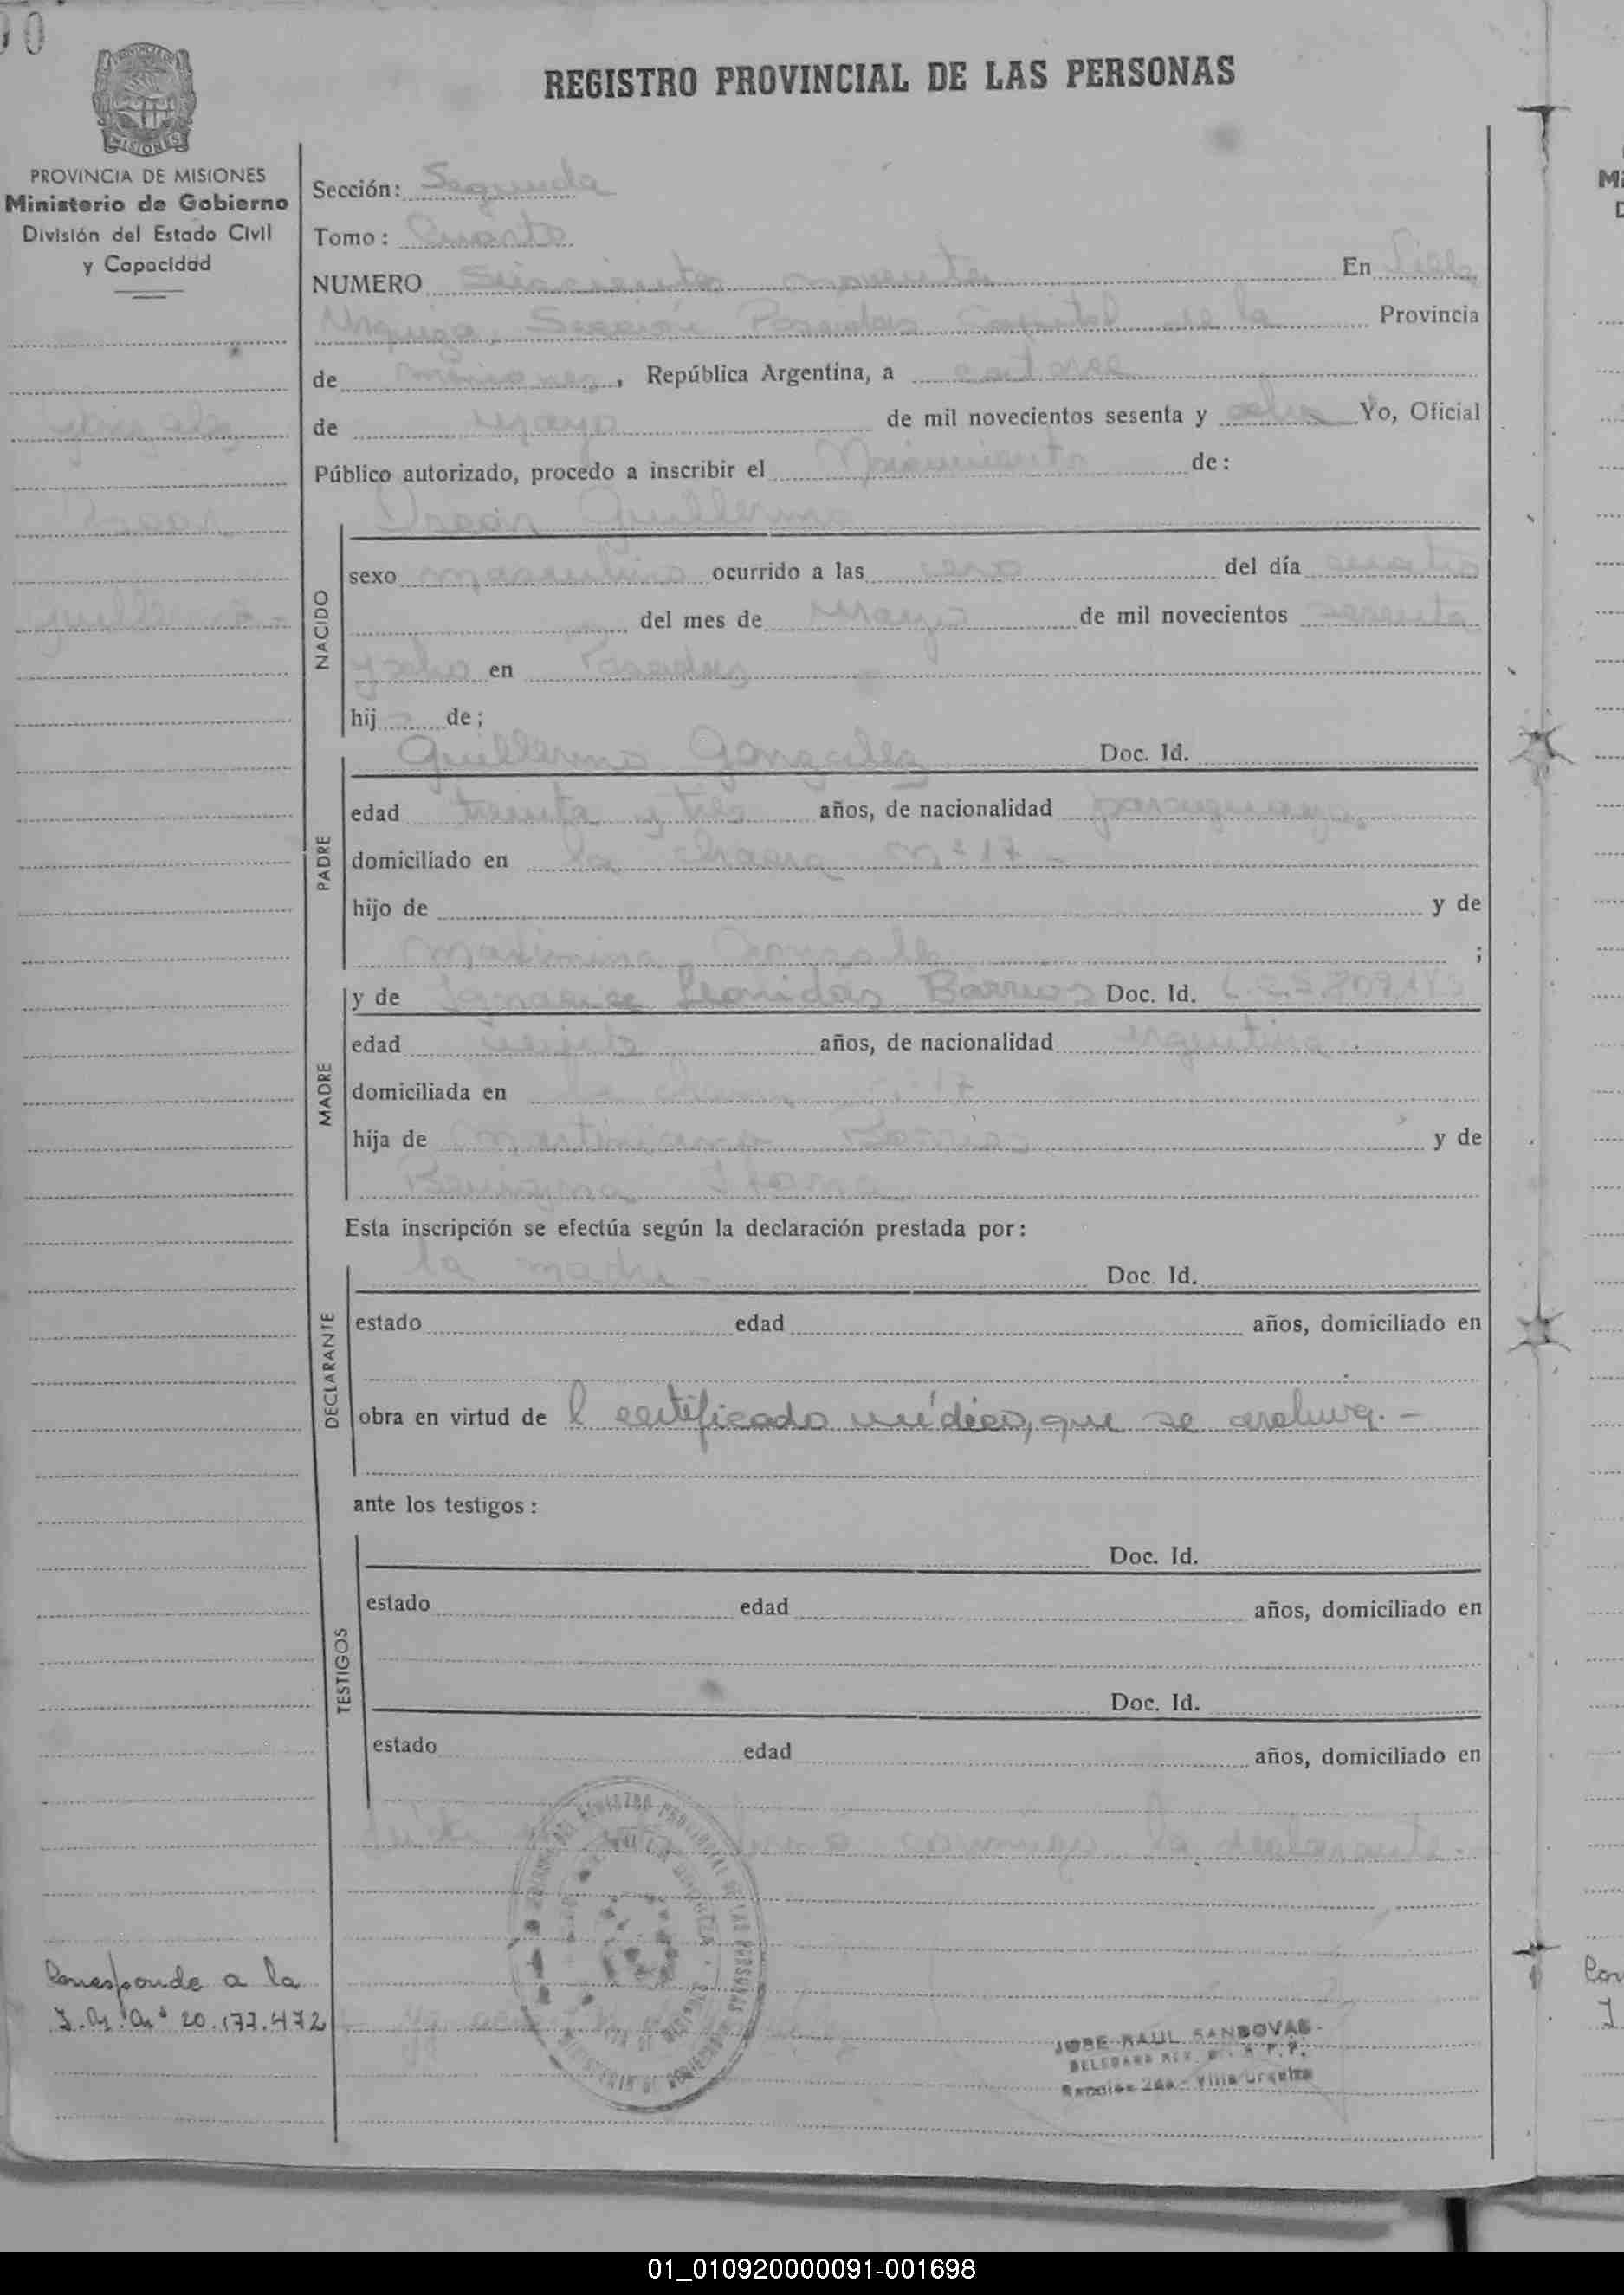 REGISTRO PROVINCIAL DE LAS PERSONAS
MISIONES
PROVINCIA DE MISIONES
Ministerio de Gobierno
División del Estado Civil
y Capacidad
Sección: Segunda
Tomo: Cuarto
NUMERO Seiscientos noventa En
Urquiza, Sección Posadas Capital de la Provincia
de Misiones, República Argentina, a catorce
de mayo de mil novecientos sesenta y ocho Yo, Oficial
Público autorizado, procedo a inscribir el Nacimiento de:
Oscar Guillermo
NACIDO
sexo masculino ocurrido a las cero del día cuatro
del mes de Mayo de mil novecientos sesenta
y ocho en Posadas
hij de;
Gonzalez
Oscar
Guillermo.-
PADRE
Guillermo Gonzalez Doc. Id.
edad treinta y tres años, de nacionalidad paraguaya
domiciliado en la chacra Nº 17 -
hijo de y de
;
MADRE
y de Leonidas Barrios Doc. Id.
edad años, de nacionalidad argentina
domiciliada en chacra 17
hija de Martiniano Barrios y de
Benigna
Esta inscripción se efectúa según la declaración prestada por:
DECLARANTE
la madre - Doc. Id.
estado edad años, domiciliado en
obra en virtud de l certificado médico, que se archiva.-
ante los testigos:
TESTIGOS
Doc. Id.
estado edad años, domiciliado en
Doc. Id.
estado edad años, domiciliado en
conmigo la declarante.
Corresponde a la
20.177.472
JOSE RAUL SANDOVAL
Sección 2da - Villa Urquiza
01_010920000091-001698